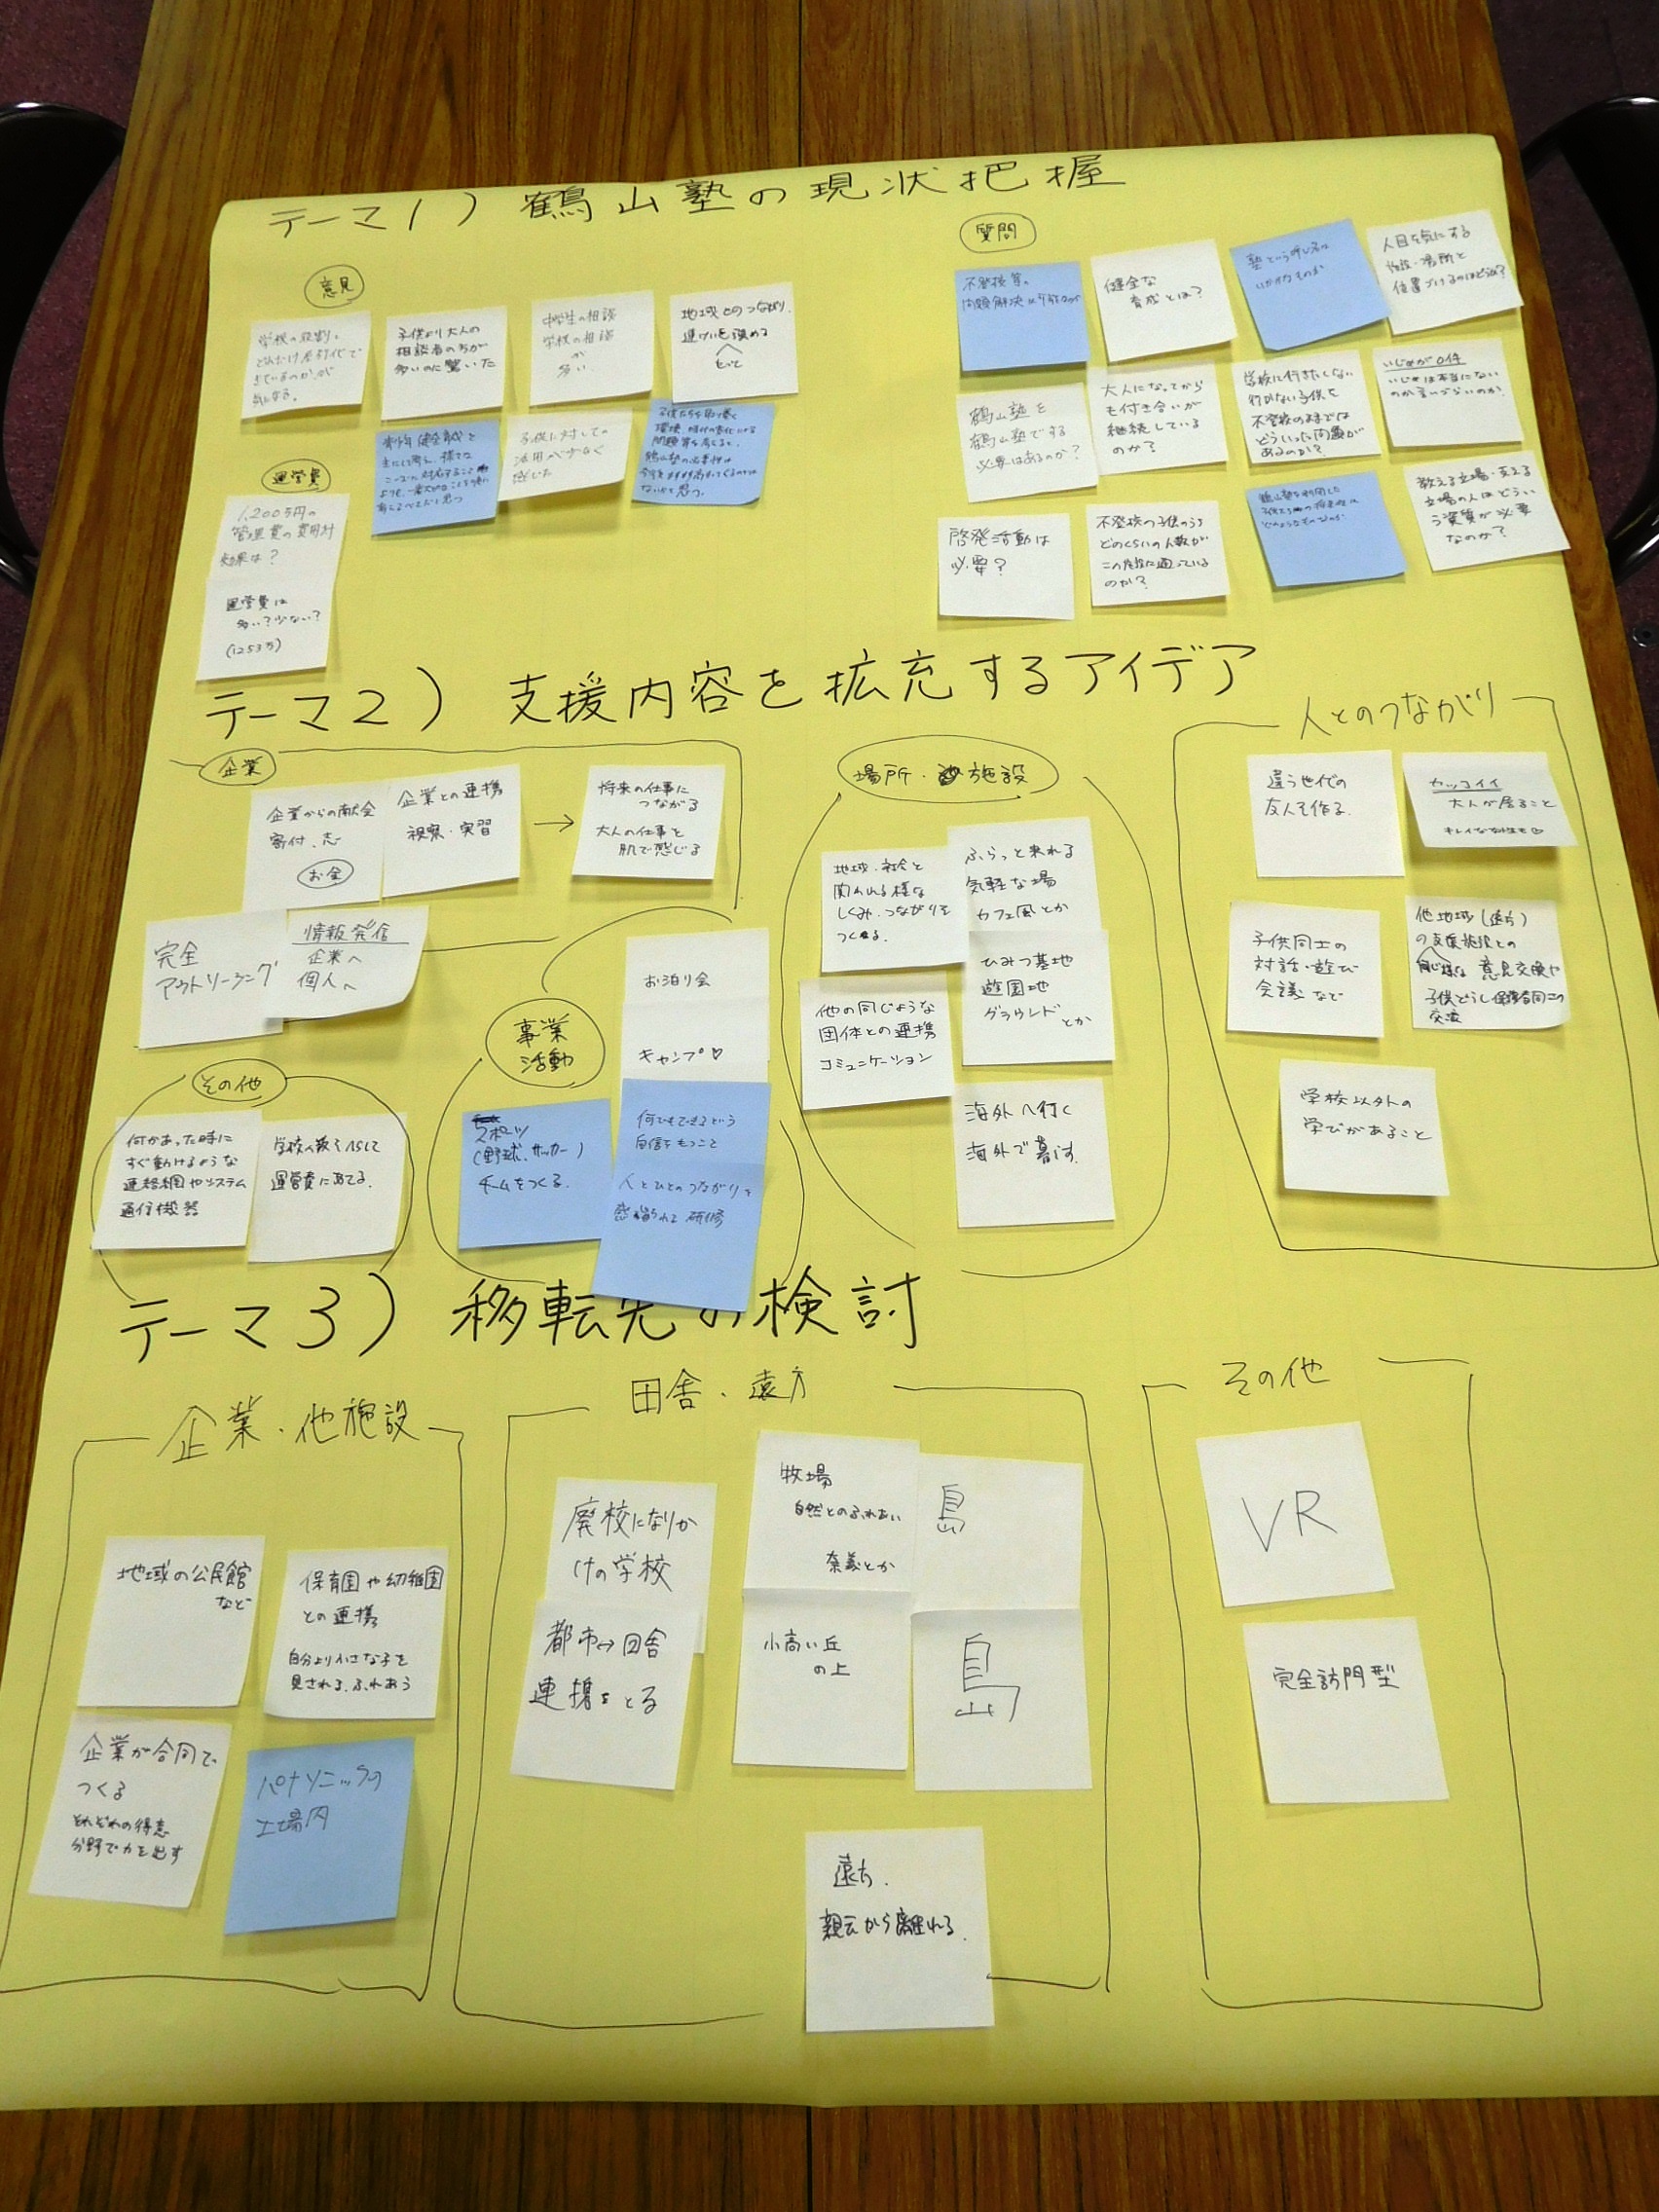 テーマ1) 鶴山塾の現状把握
意見
学校の役割を
どれだけ肩代代で
きているのか、が
気になる。
子供より大人の
相談者の方が
多いのに驚いた
中学生の相談
学校の相談
が
多い
地域とのつながり、
連けいを深める
もっと
青少年健全育成を
子供に対しての
活用が少なく
感じた
子供たちを取り巻く
環境、時代の変化による
問題等を考えると、
鶴山塾の必要性は
ないかと思う。
運営費
1,200万円の
管理費の費用対
効果は?
運営費は
多い?少ない?
(1253万)
質問
不登校等、
問題解決は可能なのか
健全な
育成とは?
塾という呼び名は
いかがなものか
人目を気にする
施設・場所と
位置づけるのはどう?
鶴山塾を
鶴山塾でする
必要はあるのか?
大人になってから
も付き合いが
継続している
のか?
学校に行きたくない
行かない子供を
不登校のままでは
どういった問題が
あるのか?
いじめが0件
いじめは本当にない
のか言いづらいのか?
啓発活動は
必要?
不登校の子供のうち
どのくらいの人数が
この施設に通っている
のか?
鶴山塾を利用した
教える立場・支える
立場の人はどうい
う資質が必要
なのか?
テーマ2) 支援内容を拡充するアイデア
企業
企業からの献金
寄付、志
お金
企業との連携
視察・実習
→
将来の仕事に
つながる
大人の仕事を
肌で感じる
完全
アウトリーチング
情報発信
企業へ
個人へ
その他
何かあった時に
すぐ動けるような
連絡網やシステム
通信機器
学校の数を減らして
運営費にあてる。
事業
活動
お泊り会
キャンプ♡
スポーツ
(野球、サッカー)
チームをつくる。
何でもできるという
自信をもつこと
人とひとのつながりを
感じられる 研修
場所・施設
地域・社会と
関われる様な
しくみ・つながりを
つくる。
ふらっと来れる
気軽な場
カフェ風とか
ひみつ基地
遊園地
グラウンドとか
他の同じような
団体との連携
コミュニケーション
海外へ行く
海外で暮す。
人とのつながり
違う世代の
友人を作る。
カッコイイ
大人が居ること
キレイな女性も
子供同士の
対話・遊び
会議 など
他地域(遠方)
の支援施設との
同じ様な 意見交換や
子供どうし保護者同士の
交流
学校以外の
学びがあること
テーマ3) 移転先の検討
企業・他施設
地域の公民館
など
保育園や幼稚園
との連携
自分より小さな子を
見される、ふれあう
企業が合同で
つくる
それぞれの得意
分野で力を出す
パナソニックの
工場内
田舎・遠方
廃校になりか
けの学校
都市↔田舎
連携をとる
牧場
自然とのふれあい
奈義とか
島
小高い丘
の上
島
遠方、
親元から離れる。
その他
VR
完全訪問型